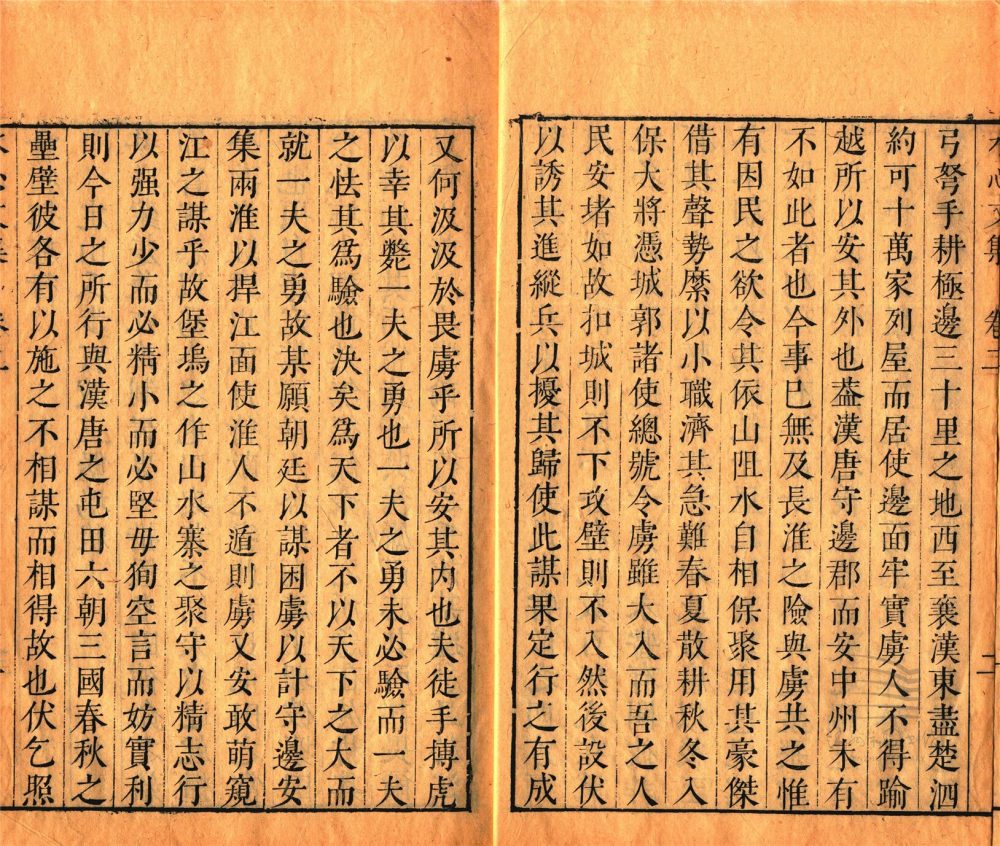 弓弩手耕極邊三十里之地西至襄漢東盡楚泗
約可十萬家列屋而居使邊面牢實虜人不得踰
越所以安其外也葢漢唐守邊郡而安中州未有
不如此者也今事已無及長淮之險與虜共之惟
有因民之欲令其依山阻水自相保聚用其豪傑
借其聲勢縻以小職濟其急難春夏散耕秋冬入
保大將憑城郭諸使總號令虜雖大入而吾之人
民安堵如故扣城則不下攻壁則不入然後設伏
以誘其進縱兵以擾其歸使此謀果定行之有成
又何汲汲於畏虜乎所以安其内也夫徒手搏虎
以幸其斃一夫之勇也一夫之勇未必驗而一夫
之怯其爲驗也決矣爲天下者不以天下之大而
就一夫之勇故某願朝廷以謀困虜以計守邊安
集兩淮以捍江面使淮人不遁則虜又安敢萌窺
江之謀乎故堡塢之作山水寨之聚守以精志行
以强力少而必精小而必堅毋狥空言而妨實利
則今日之所行與漢唐之屯田六朝三國春秋之
壘壁彼各有以施之不相謀而相得故也伏乞照